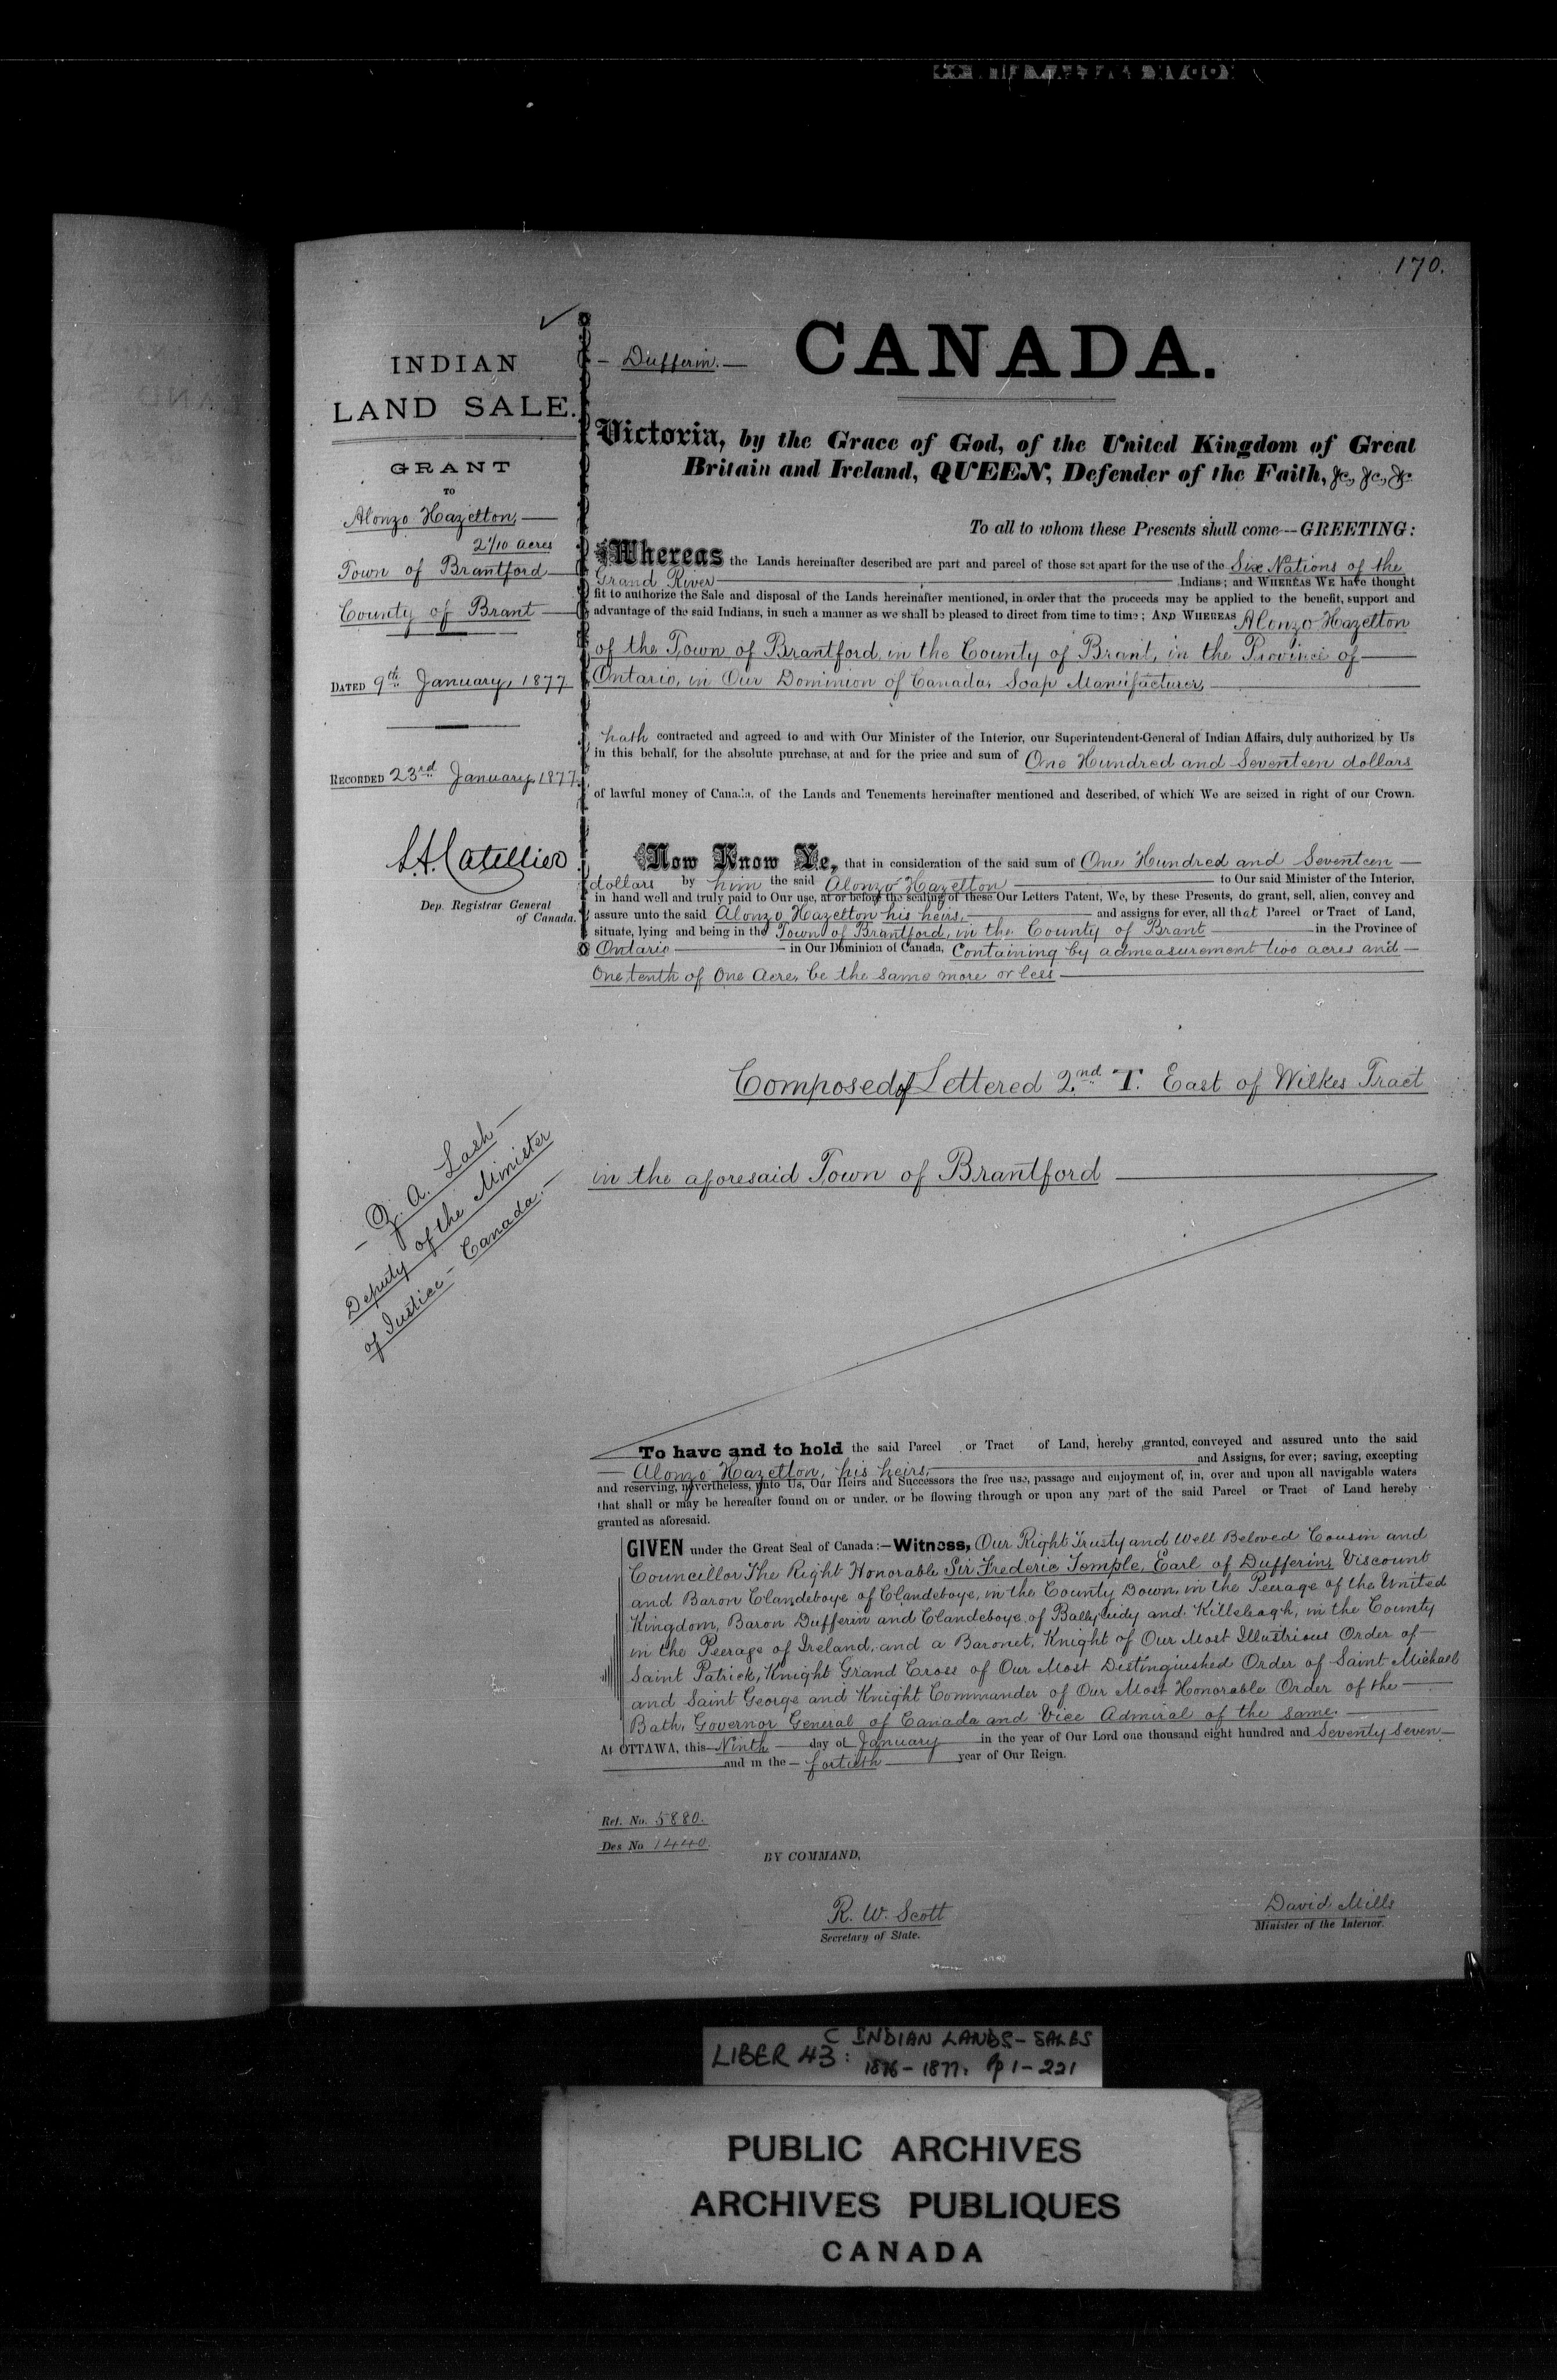 170.
INDIAN
LAND SALE.
GRANT
TO
Alonzo Hazelton,
2 1/10 acres
Town of Brantford
County of Brant
DATED 9th January, 1877
RECORDED 23rd January, 1877.
Dep. Registrar General
of Canada.
Z. A. Lash
Deputy of the Minister
of Justice - Canada.
- Dufferin. -
CANADA.
Victoria, by the Grace of God, of the United Kingdom of Great
Britain and Ireland, QUEEN, Defender of the Faith, &c, &c, &c
To all to whom these Presents shall come---GREETING:
Whereas the Lands hereinafter described are part and parcel of those set apart for the use of the Six Nations of the
Grand River Indians; and WHEREAS WE have thought
fit to authorize the Sale and disposal of the Lands hereinafter mentioned, in order that the proceeds may be applied to the benefit, support and
advantage of the said Indians, in such a manner as we shall be pleased to direct from time to time; AND WHEREAS Alonzo Hazelton
of the Town of Brantford, in the County of Brant, in the Province of
Ontario, in Our Dominion of Canada, Soap Manufacturer,
hath contracted and agreed to and with Our Minister of the Interior, our Superintendent-General of Indian Affairs, duly authorized by Us
in this behalf, for the absolute purchase, at and for the price and sum of One Hundred and Seventeen dollars
of lawful money of Canada, of the Lands and Tenements hereinafter mentioned and described, of which We are seized in right of our Crown.
Now Know Ye, that in consideration of the said sum of One Hundred and Seventeen
dollars by him the said Alonzo Hazelton to Our said Minister of the Interior,
in hand well and truly paid to Our use, at or before the sealing of these Our Letters Patent, We, by these Presents, do grant, sell, alien, convey and
assure unto the said Alonzo Hazelton his heirs, and assigns for ever, all that Parcel or Tract of Land,
situate, lying and being in the Town of Brantford, in the County of Brant in the Province of
Ontario in Our Dominion of Canada, Containing by admeasurement two acres and
One tenth of One Acre, be the same more or less
Composed of Lettered 2nd T. East of Wilkes Tract
in the aforesaid Town of Brantford
To have and to hold the said Parcel or Tract of Land, hereby granted, conveyed and assured unto the said
Alonzo Hazelton, his heirs, and Assigns, for ever; saving, excepting
and reserving, nevertheless, unto Us, Our Heirs and Successors the free use, passage and enjoyment of, in, over and upon all navigable waters
that shall or may be hereafter found on or under, or be flowing through or upon any part of the said Parcel or Tract of Land hereby
granted as aforesaid.
GIVEN under the Great Seal of Canada:—Witness, Our Right Trusty and Well Beloved Cousin and
Councillor The Right Honorable Sir Frederic Temple, Earl of Dufferin, Viscount
and Baron Clandeboye of Clandeboye, in the County Down, in the Peerage of the United
Kingdom, Baron Dufferin and Clandeboye, of Ballyleidy and Killeleagh, in the County
in the Peerage of Ireland, and a Baronet, Knight of Our Most Illustrious Order of
Saint Patrick, Knight Grand Cross of Our Most Distinguished Order of Saint Michael
and Saint George and Knight Commander of Our Most Honorable Order of the
Bath, Governor General of Canada and Vice Admiral of the same.
At OTTAWA, this Ninth day of January in the year of Our Lord one thousand eight hundred and Seventy Seven
and in the fortieth year of Our Reign.
Ref. No. 5880.
Des No 1440.
BY COMMAND,
R. W. Scott
Secretary of State.
David Mills
Minister of the Interior.
LIBER 43: C INDIAN LANDS - SALES
1876 - 1877. pp 1 - 221
PUBLIC ARCHIVES
ARCHIVES PUBLIQUES
CANADA